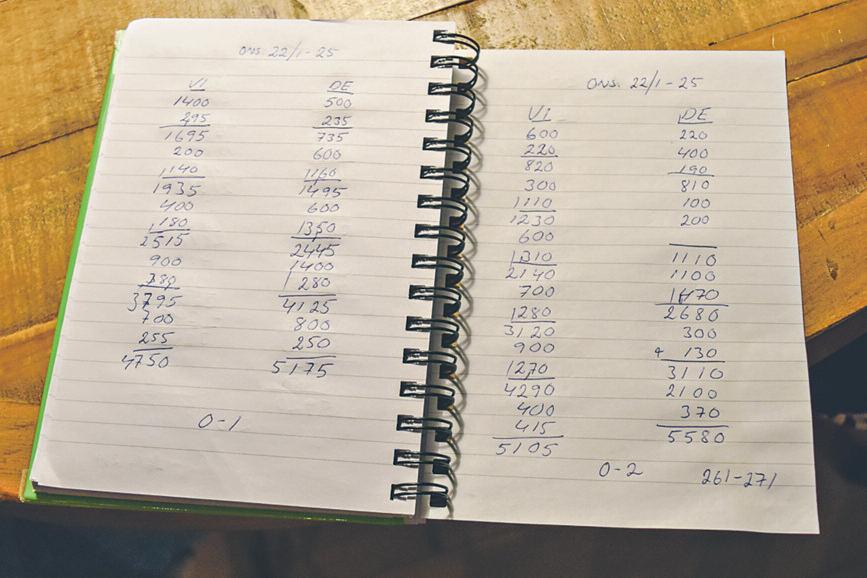 ONS. 22/1-25
VI DE
1400 500
295 235
1695 735
200 600
1140 1160
1935 1495
400 600
1180 1350
2515 2445
900 1400
380 1280
3795 4125
700 800
255 250
4750 5175
0-1
ONS. 22/1-25
VI DE
600 220
220 400
820 190
300 810
1110 100
1230 200
600
1310 1110
2140 1100
700 1470
1280 2680
3120 300
900 130
1270 3110
4290 2100
400 370
415 5580
5105
0-2 261-271